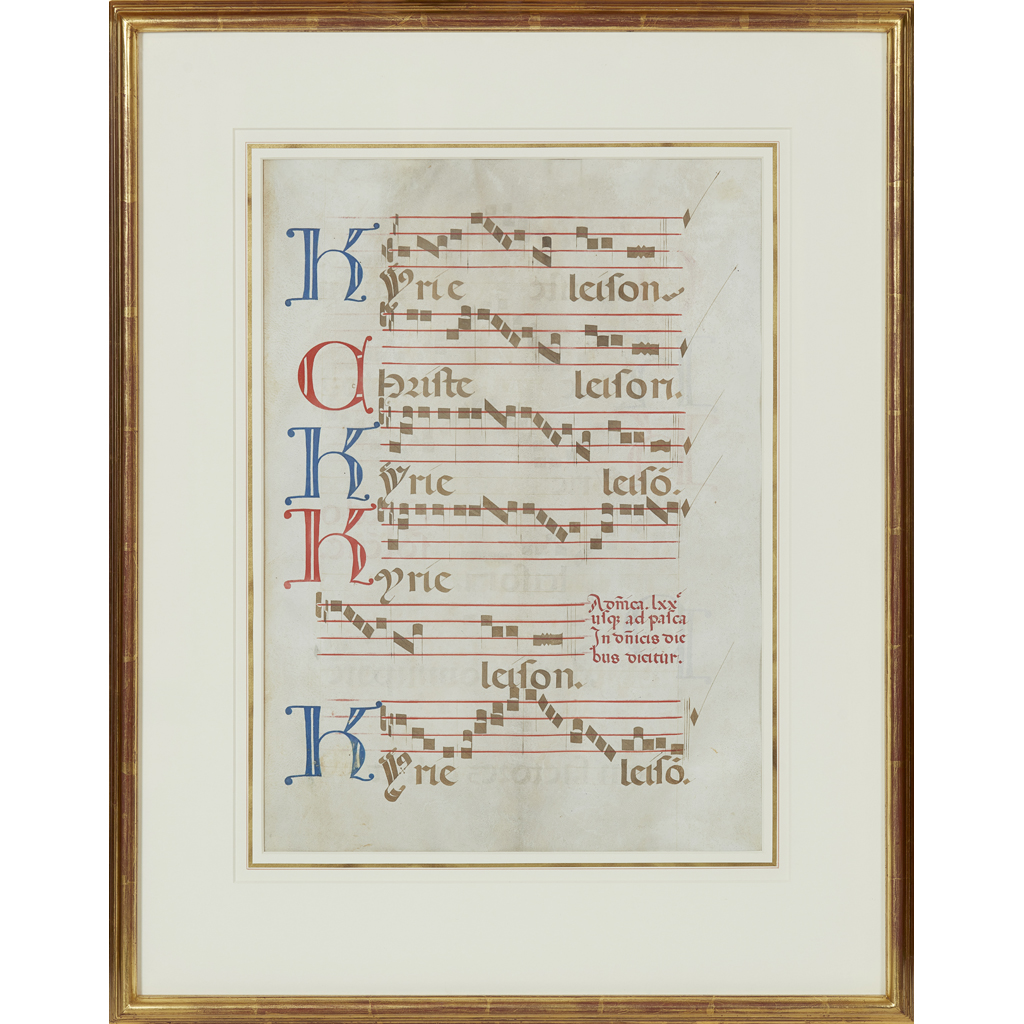 Kyrie leison.
Christe leison.
Kyrie leisō.
Kyrie
Adm̄ica. lxxᵉ
usqȝ ad pasca
In dn̄icis die
bus dicitur.
leison.
Kyrie leisō.